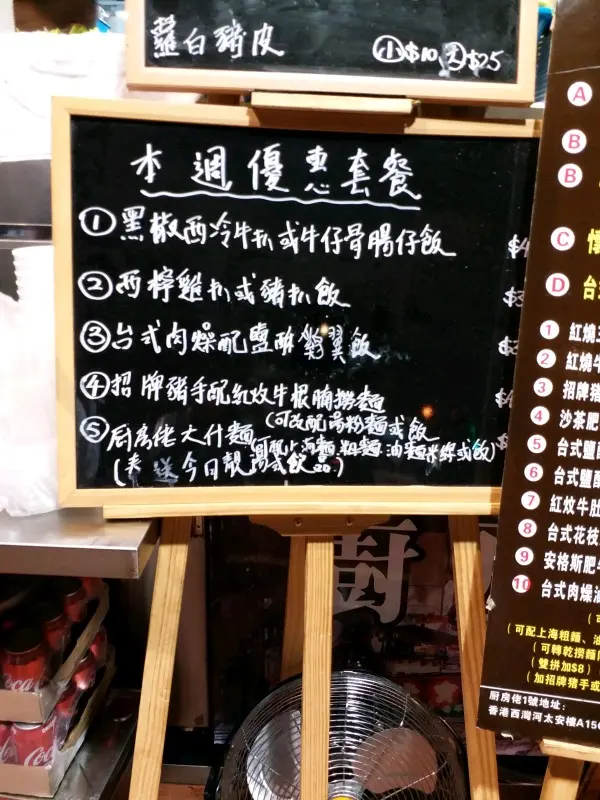 蘿白豬皮 小$10 大$25
本週優惠套餐
① 黑椒西冷牛扒或牛仔骨腸仔飯 $4
② 西檸雞扒或豬扒飯 $3
③ 台式肉燥配鹽酥雞翼飯 $3
④ 招牌豬手配紅炆牛根腩撈麵 $4
(可改配湯粉麵或飯
⑤ 厨房佬大什麵(可配上海麵.粗麵.油麵米線或飯)
(奉送今日靚湯或飲品)
A
B
B
C
D 台
1 紅燒
2 紅燒牛
3 招牌豬
4 沙茶肥
5 台式鹽
6 台式鹽
7 紅炆牛肚
8 台式花枝
9 安格斯肥牛
10 台式肉燥
(可配上海粗麵、油
(可轉乾撈麵
(雙拼加$8)
(加招牌豬手或
厨房佬1號地址:
香港西灣河太安樓A15
厨
Coca
Coca